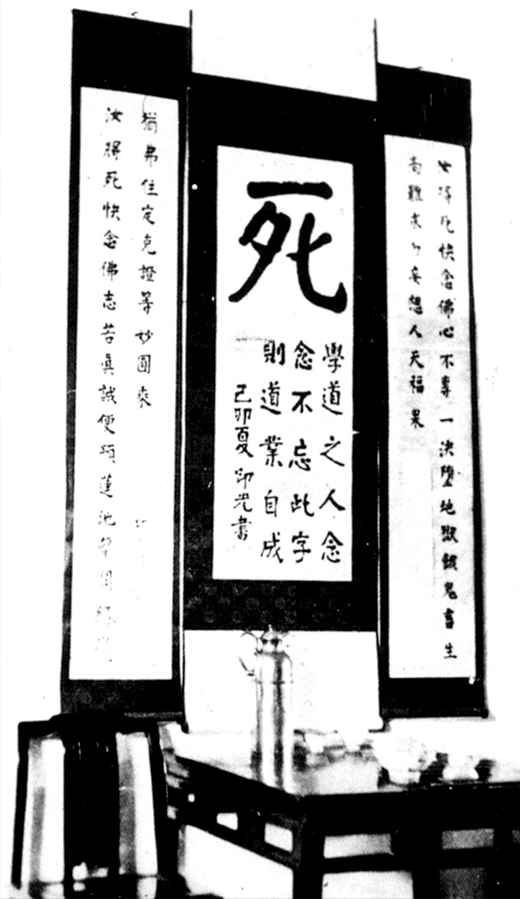 汝將死快念佛心不專一決墮地獄餓鬼畜生
尚難求勿妄想人天福果
死
學道之人念
念不忘此字
則道業自成
己卯夏印光書
汝將死快念佛志若眞誠便預蓮池
猶弗住定克證等妙圓乘